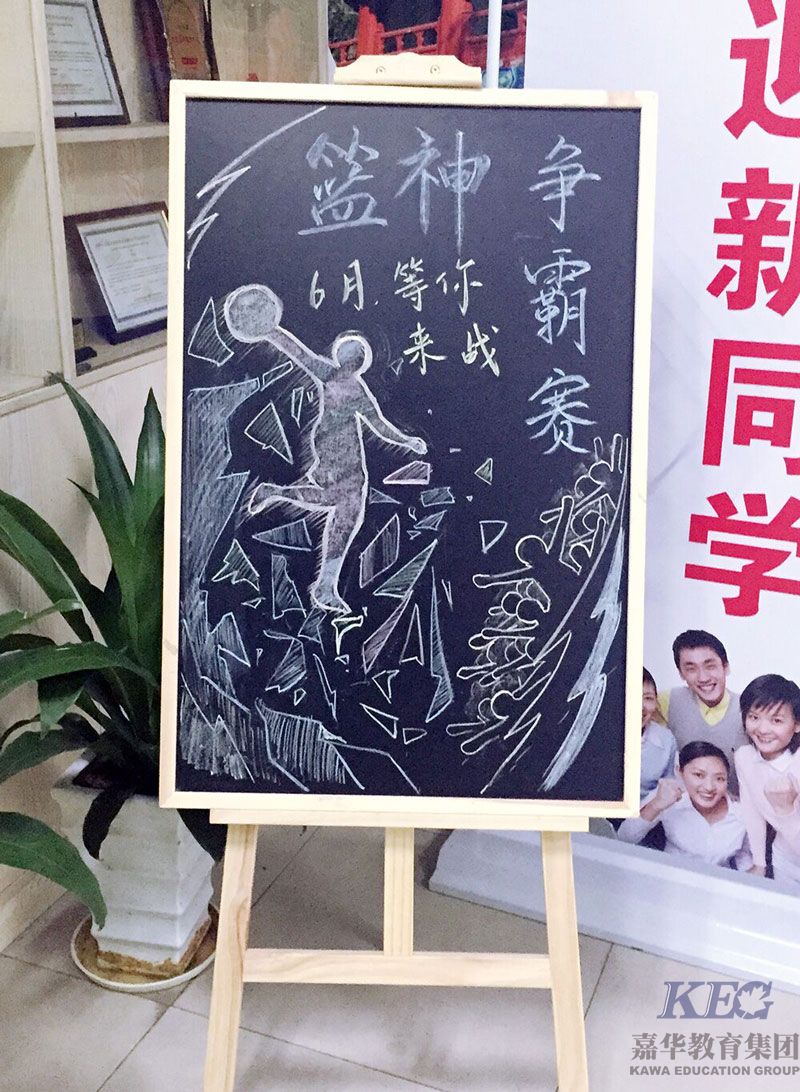 篮神争霸赛
6月.等你
来战
迎新同学
KEG
嘉华教育集团
KAWA EDUCATION GROUP